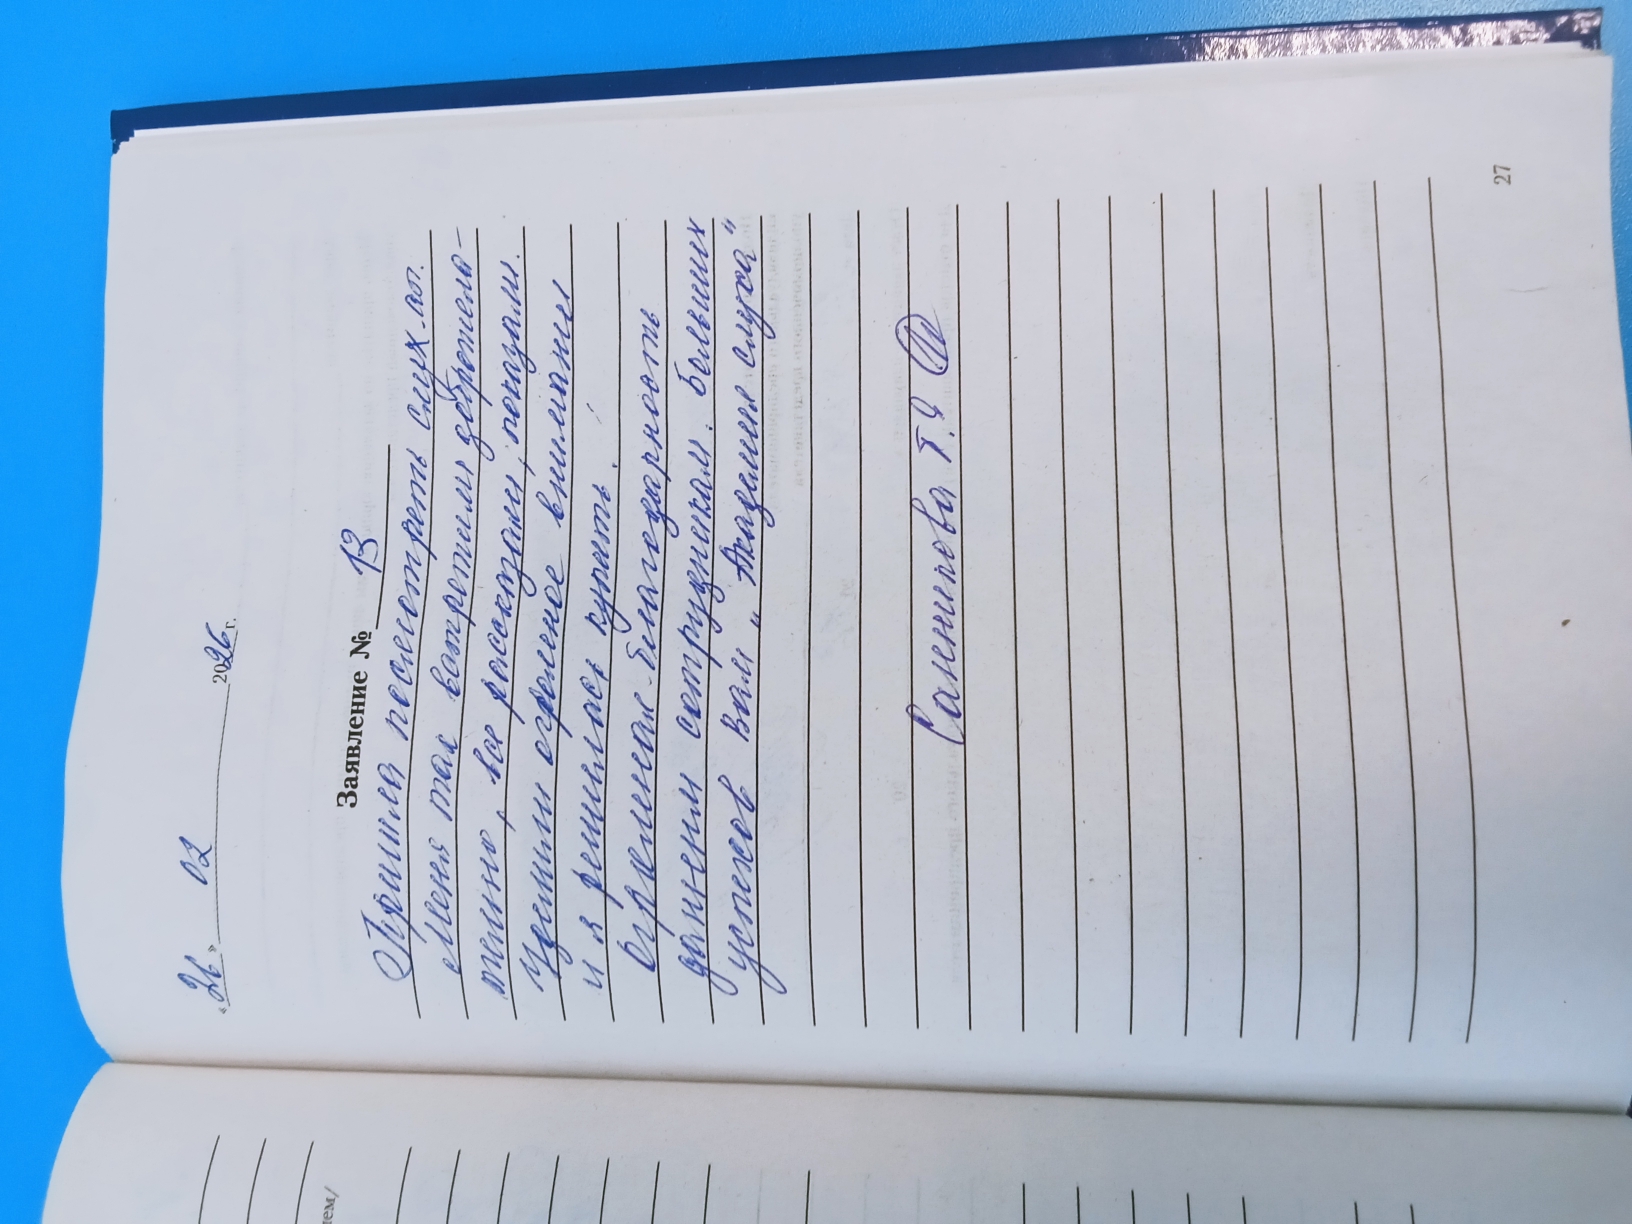 «26» 02 2026 г.
Заявление № 13
Пришла посмотреть слух
Меня так встретили доброжела-
тельно, все рассказали, показали.
Уделили огромное внимание
и я решилась купить.
Огромная благодарность
данным сотрудникам. Больших
успехов Вам „Академия слуха"
Санникова Т.
27
ем/